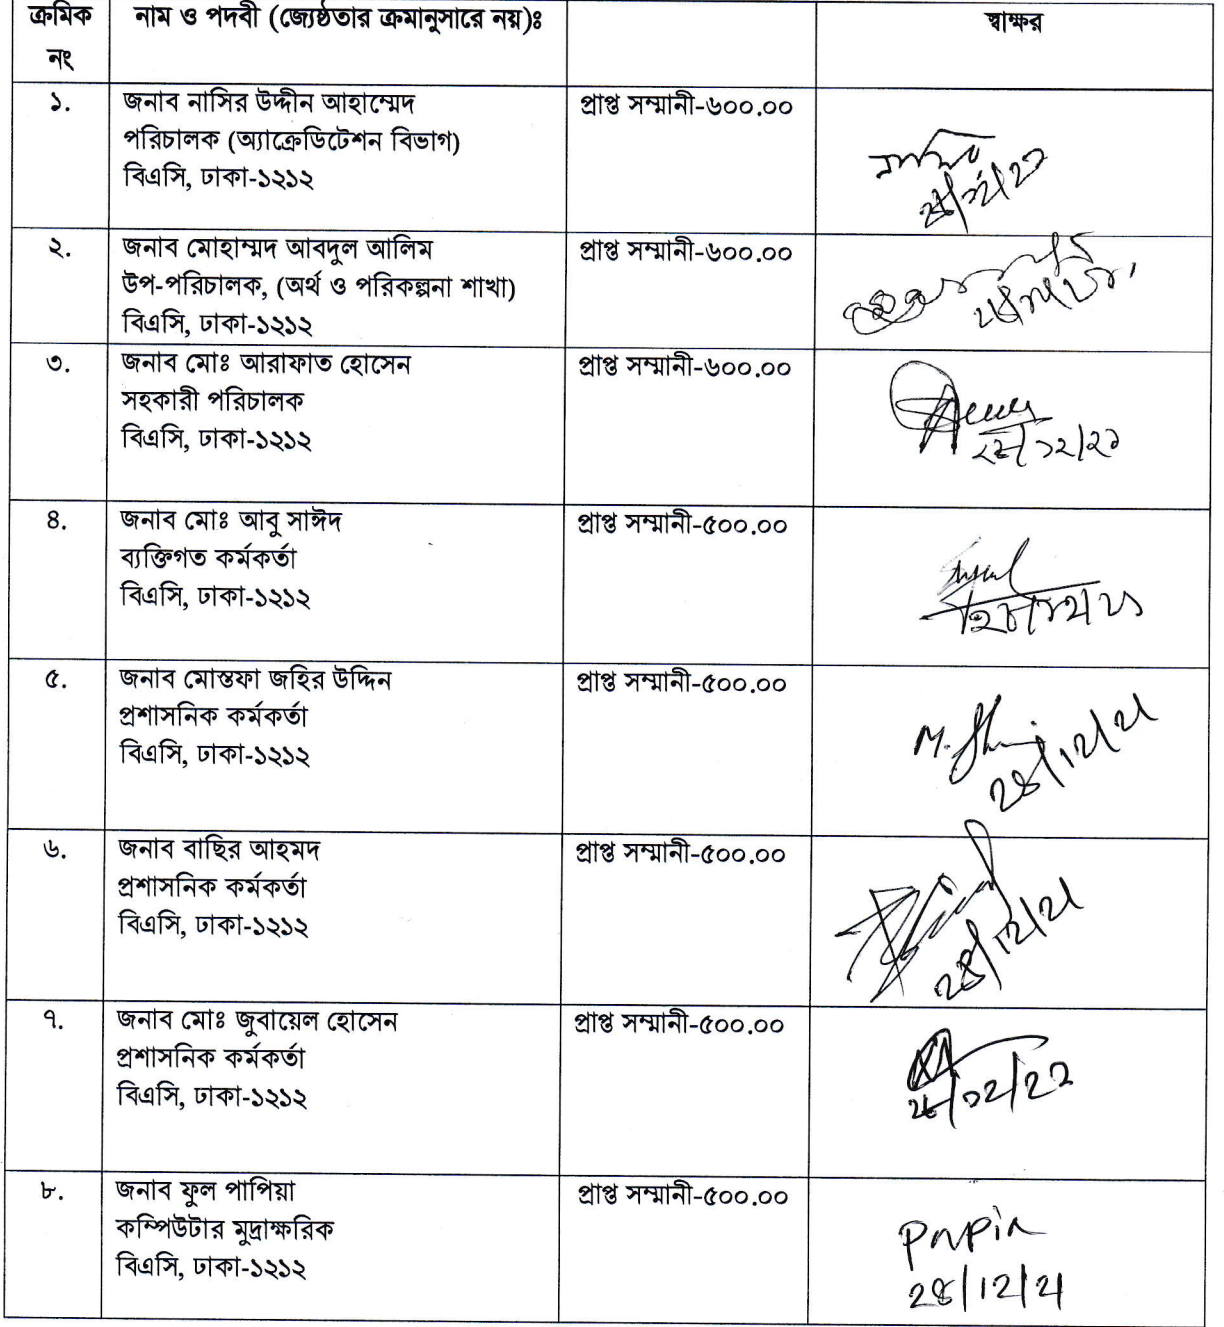 ক্রমিক নং
নাম ও পদবী (জ্যেষ্ঠতার ক্রমানুসারে নয়)ঃ
স্বাক্ষর
১.
জনাব নাসির উদ্দীন আহাম্মেদ
পরিচালক (অ্যাক্রেডিটেশন বিভাগ)
বিএসি, ঢাকা-১২১২
প্রাপ্ত সম্মানী-৬০০.০০
২.
জনাব মোহাম্মদ আবদুল আলিম
উপ-পরিচালক, (অর্থ ও পরিকল্পনা শাখা)
বিএসি, ঢাকা-১২১২
প্রাপ্ত সম্মানী-৬০০.০০
৩.
জনাব মোঃ আরাফাত হোসেন
সহকারী পরিচালক
বিএসি, ঢাকা-১২১২
প্রাপ্ত সম্মানী-৬০০.০০
৪.
জনাব মোঃ আবু সাঈদ
ব্যক্তিগত কর্মকর্তা
বিএসি, ঢাকা-১২১২
প্রাপ্ত সম্মানী-৫০০.০০
৫.
জনাব মোস্তফা জহির উদ্দিন
প্রশাসনিক কর্মকর্তা
বিএসি, ঢাকা-১২১২
প্রাপ্ত সম্মানী-৫০০.০০
28/12/21
৬.
জনাব বাছির আহমদ
প্রশাসনিক কর্মকর্তা
বিএসি, ঢাকা-১২১২
প্রাপ্ত সম্মানী-৫০০.০০
28/12/21
৭.
জনাব মোঃ জুবায়েল হোসেন
প্রশাসনিক কর্মকর্তা
বিএসি, ঢাকা-১২১২
প্রাপ্ত সম্মানী-৫০০.০০
৮.
জনাব ফুল পাপিয়া
কম্পিউটার মুদ্রাক্ষরিক
বিএসি, ঢাকা-১২১২
প্রাপ্ত সম্মানী-৫০০.০০
Papia
28/12/21